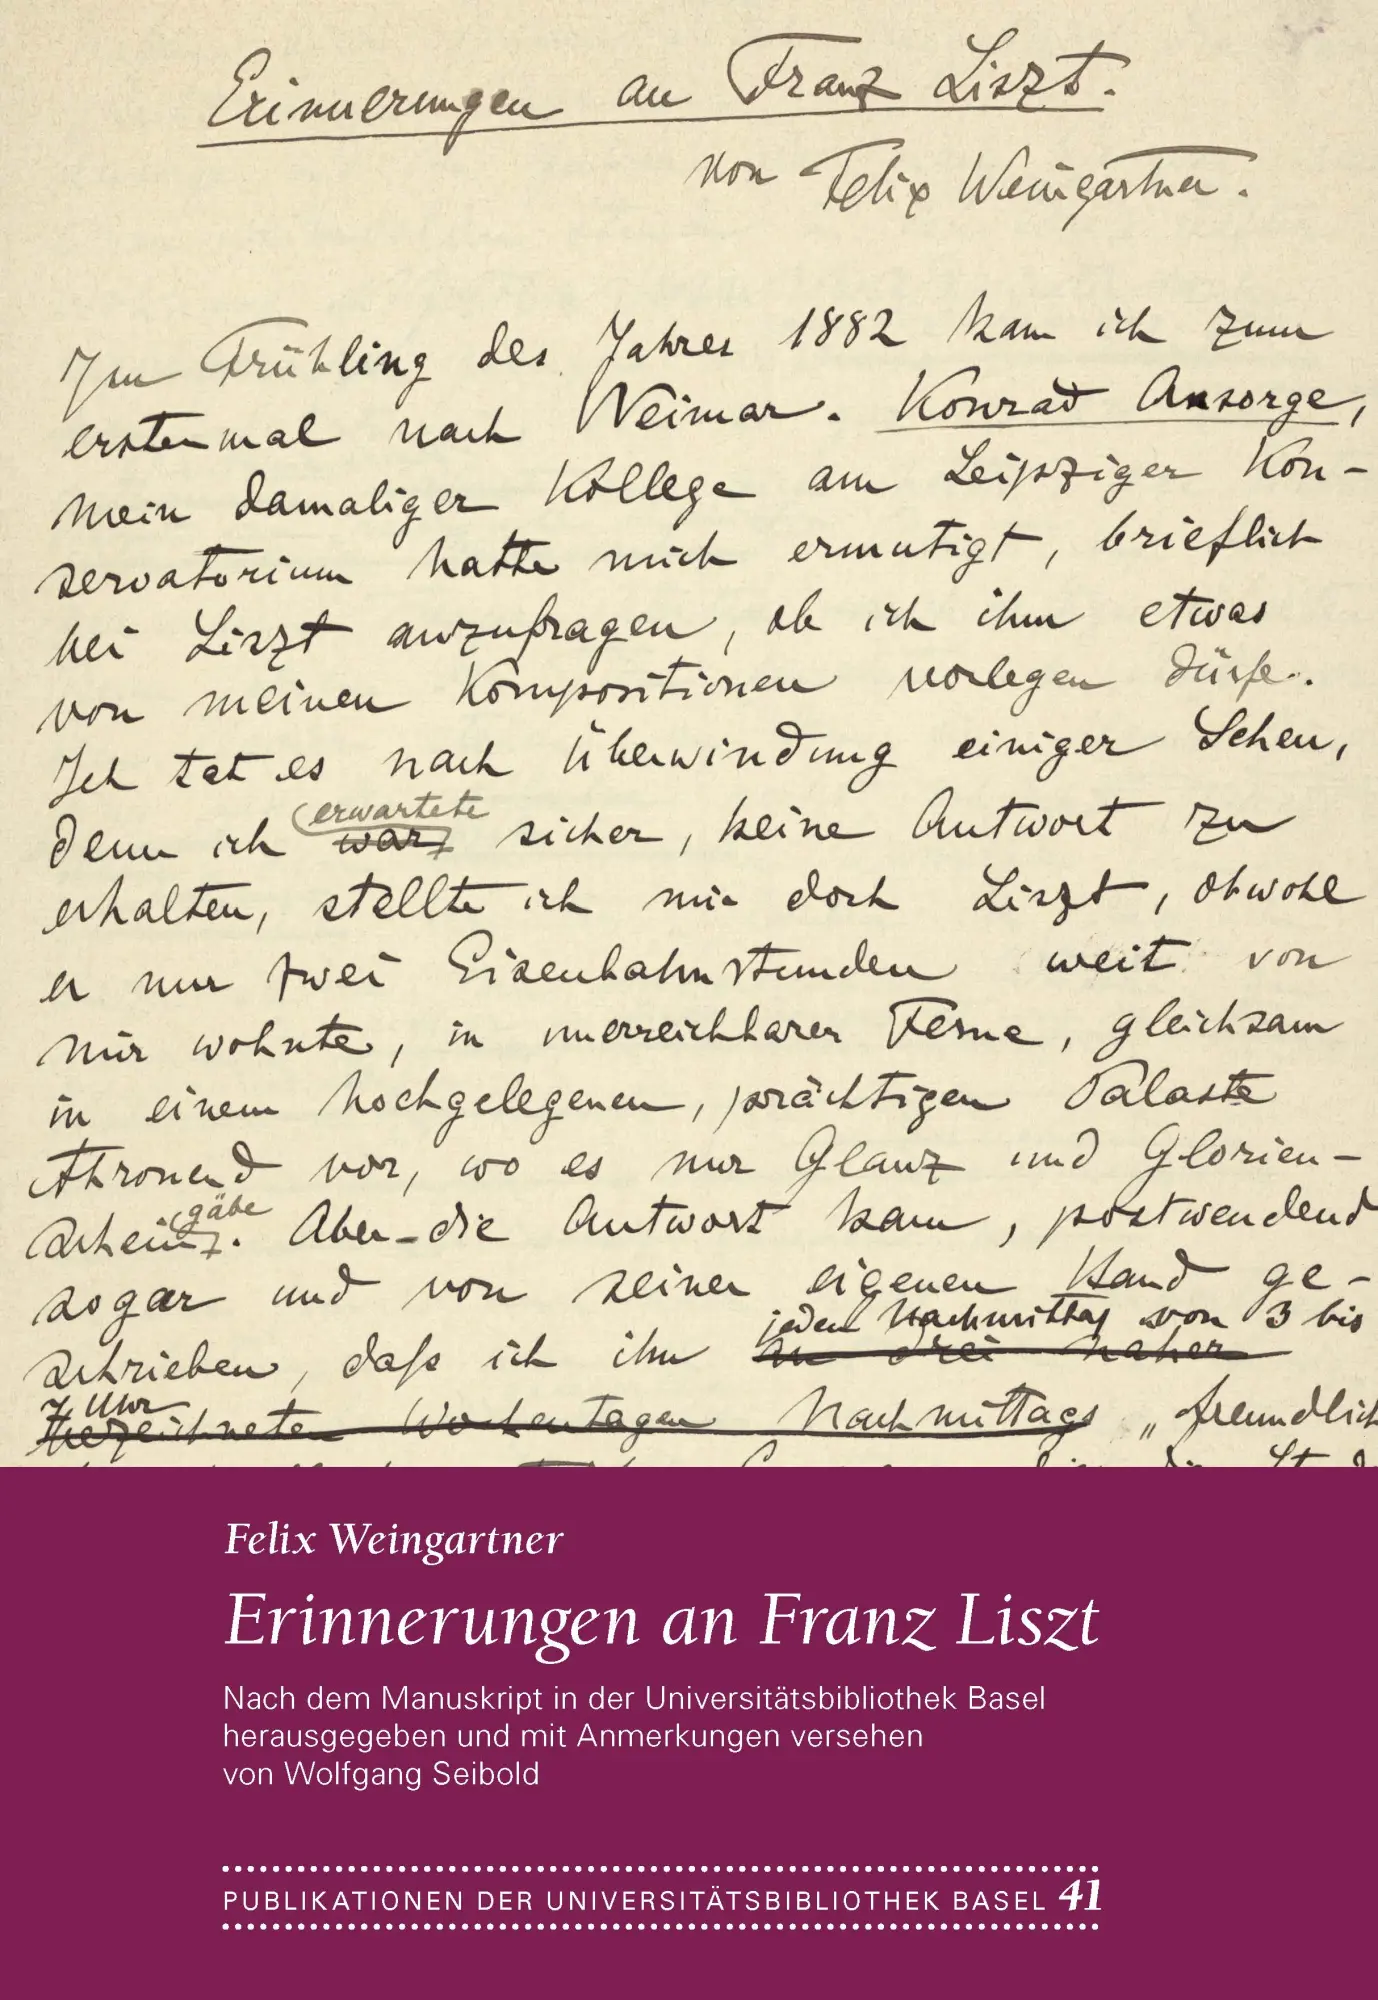 Erinnerungen an Franz Liszt.
von Felix Weingartner.
Im Frühling des Jahres 1882 kam ich zum
erstenmal nach Weimar. Konrad Ansorge,
mein damaliger Kollege am Leipziger Kon-
servatorium hatte mich ermutigt, brieflich
bei Liszt anzufragen, ob ich ihm etwas
von meinen Kompositionen vorlegen dürfe.
Ich tat es nach Überwindung einiger Scheu,
erwartete
denn ich war sicher, keine Antwort zu
erhalten, stellte ich mir doch Liszt, obwohl
er nur zwei Eisenbahnstunden weit von
mir wohnte, in unerreichbarer Ferne, gleichsam
in einem hochgelegenen, prächtigen Palaste
thronend vor, wo es nur Glanz und Glorien-
gäbe
schein. Aber die Antwort kam, postwendend
sogar und von seiner eigenen Hand ge-
jeden Nachmittag von 3 bis
schrieben, daß ich ihn an drei näher
Uhr
bezeichneten Wochentagen Nachmittags „freundlich
Felix Weingartner
Erinnerungen an Franz Liszt
Nach dem Manuskript in der Universitätsbibliothek Basel
herausgegeben und mit Anmerkungen versehen
von Wolfgang Seibold
PUBLIKATIONEN DER UNIVERSITÄTSBIBLIOTHEK BASEL 41